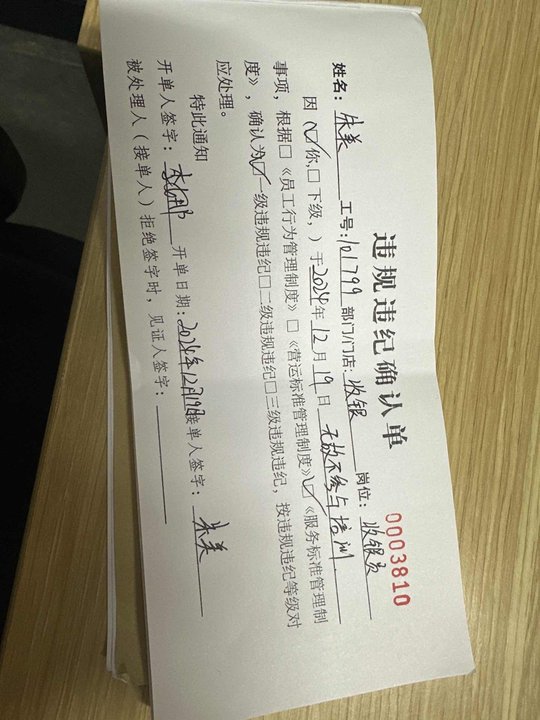 违规违纪确认单
0003810
姓名：朱美 工号：101799 部门/门店：收银 岗位：收银员
因（☑你，□下级，）于2024年12月19日 无故不参与培训
事项，根据□《员工行为管理制度》□《营运标准管理制度》☑《服务标准管理制
度》，确认为☑一级违规违纪□二级违规违纪□三级违规违纪，按违规违纪等级对
应处理。
特此通知
开单人签字： 开单日期：2024年12月19日接单人签字：朱美
被处理人（接单人）拒绝签字时，见证人签字：